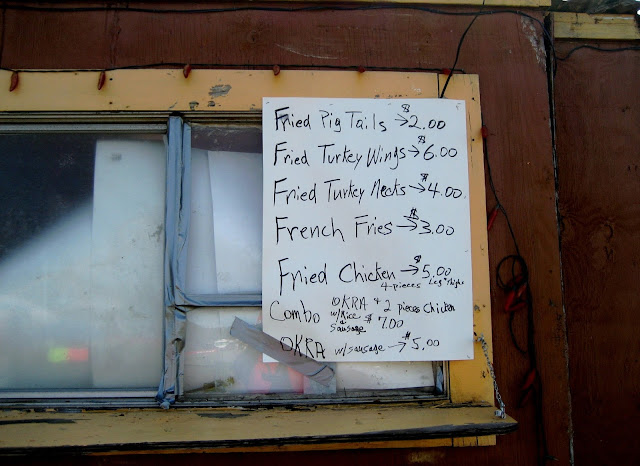 Fried Pig Tails → $2.00
Fried Turkey Wings → $6.00
Fried Turkey Necks → $4.00
French Fries → $3.00
Fried Chicken → $5.00
4-pieces Leg + thighs
Combo OKRA + 2 pieces Chicken
w/Rice $7.00
sausage
OKRA w/sausage → $5.00